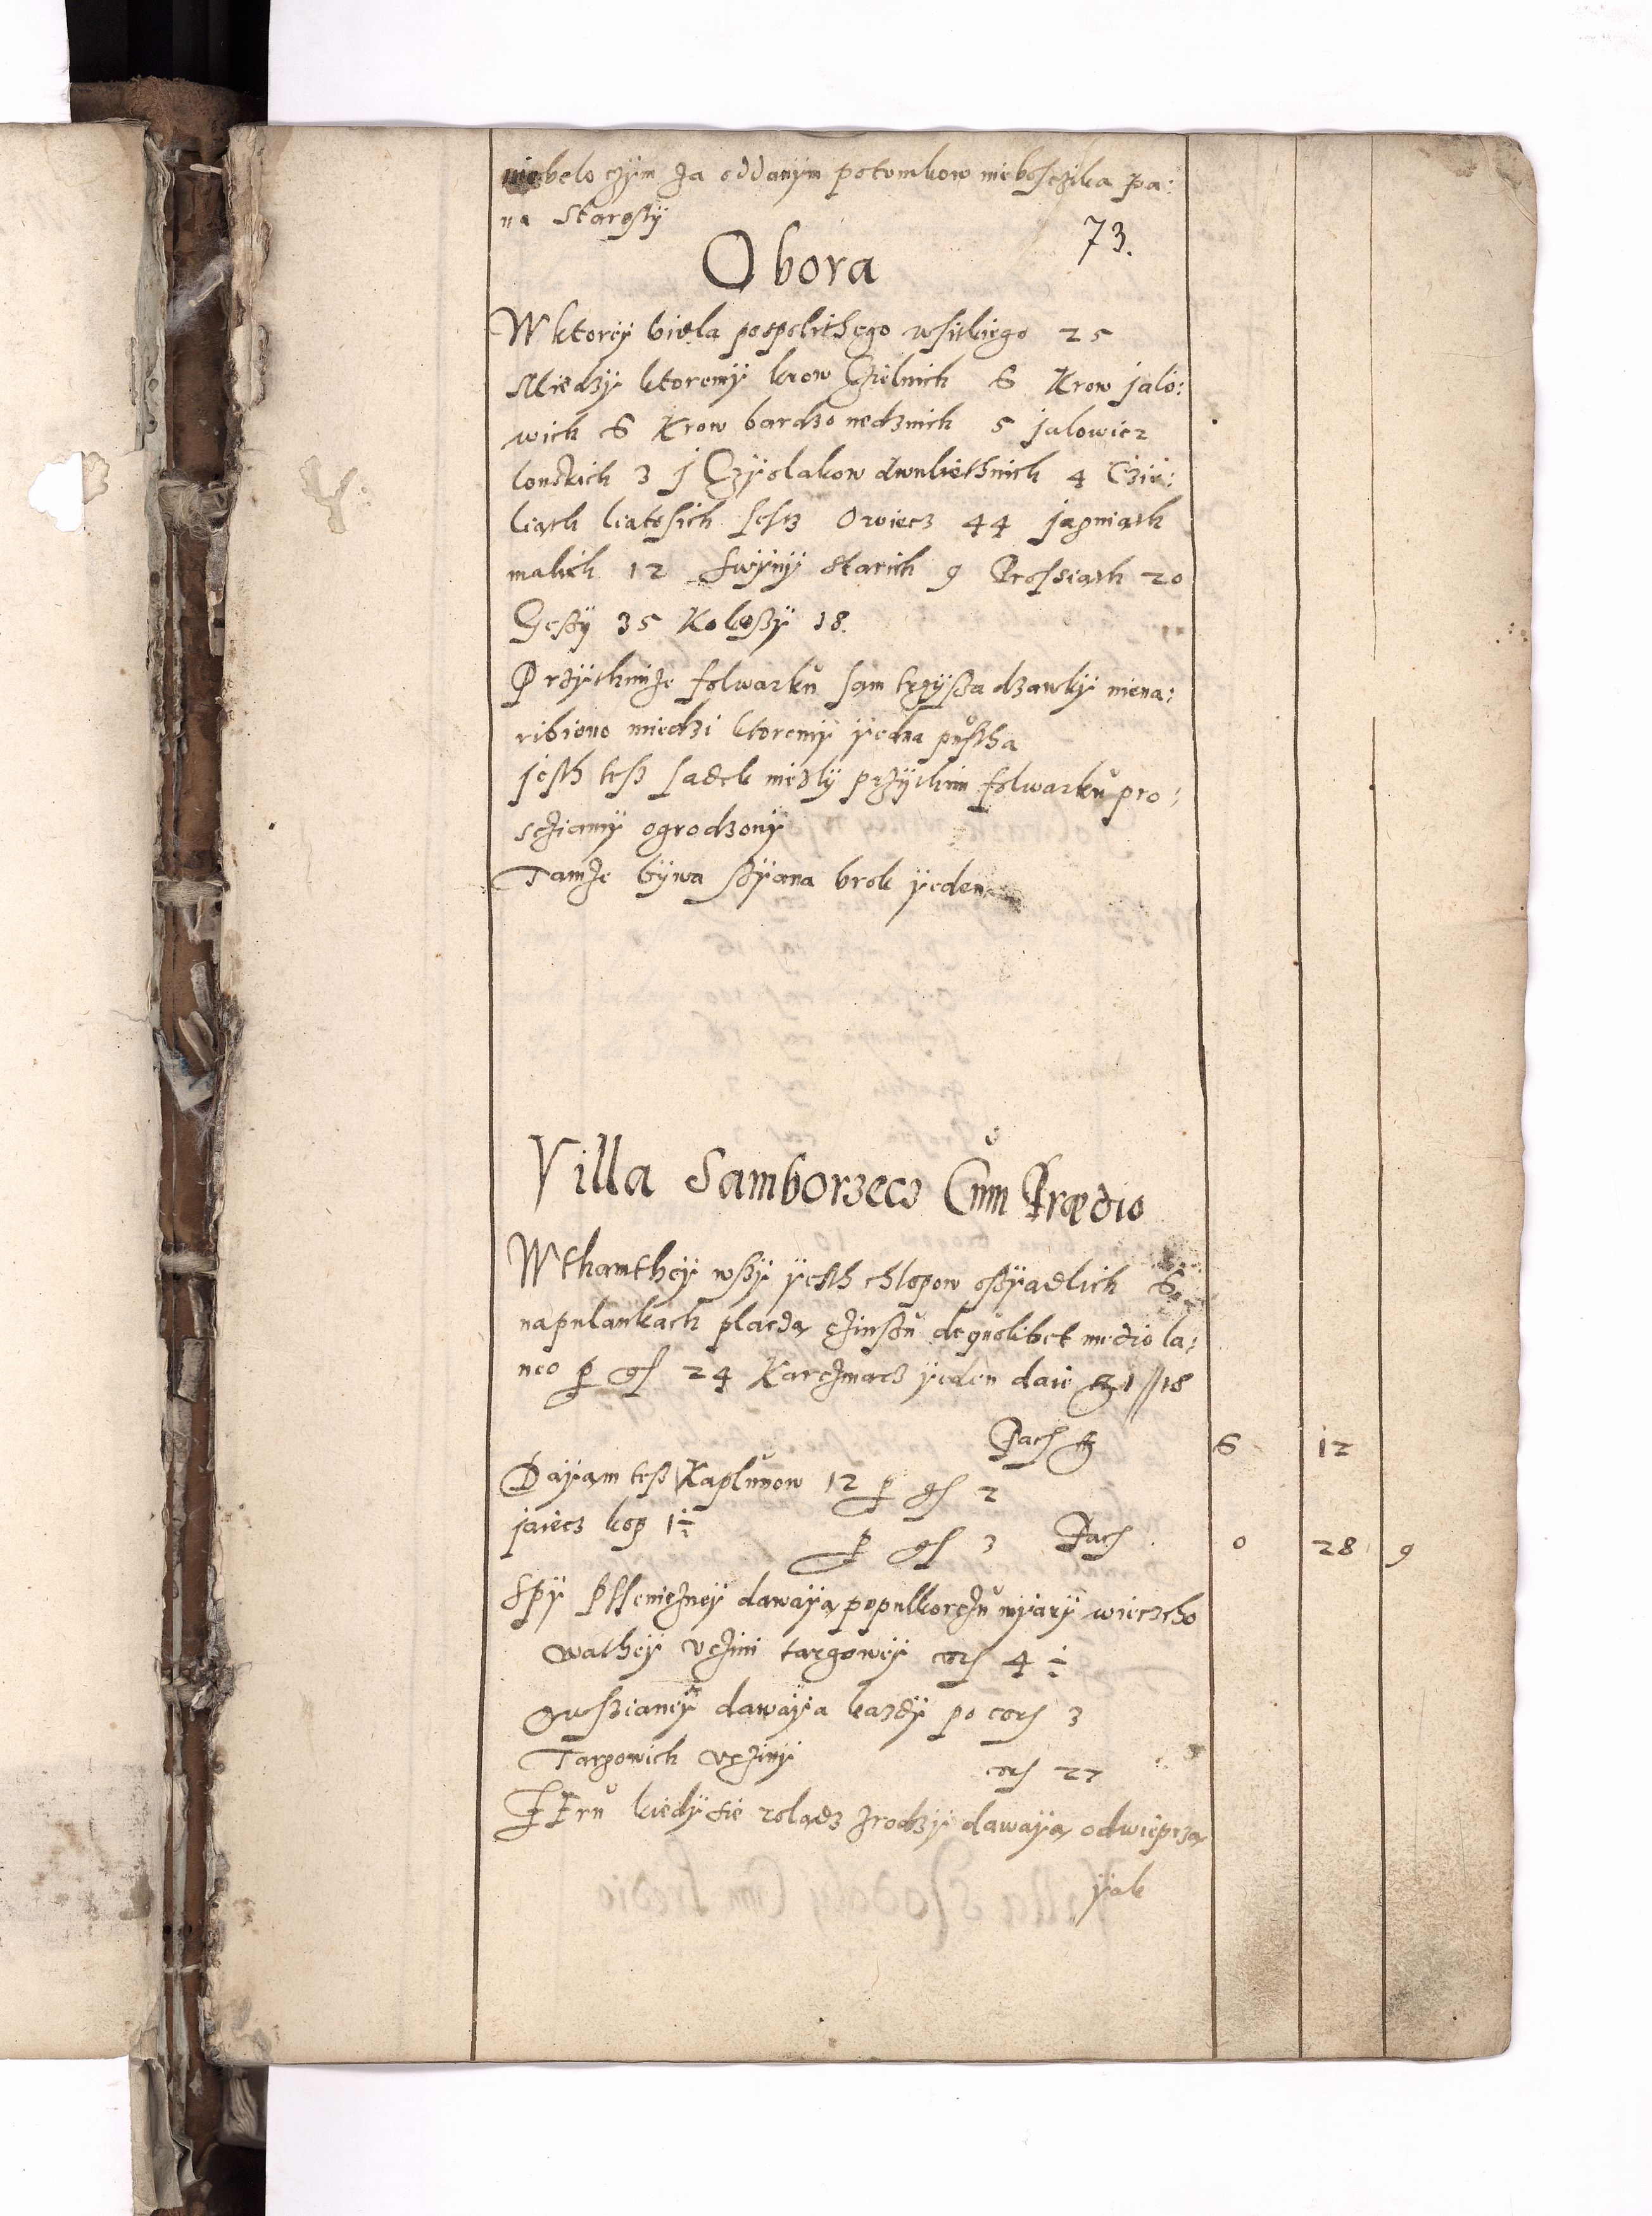 niebelo czym za oddanym potomkow nieboszika pa:
na Starosty
73.
Obora
W ktorey bidla pospolithego wsitkiego 25
Miedzy ktoremy krow Czielnich 6 Krow jalo:
wich 6 Krow bardzo nedznich 5 jalowicz
lonskich 3 j Czyolakow dwuliethnich 4 Czie:
liath liatosich sesz Owiecz 44 jagniath
malich 12 Swyny starich 9 Prossiath 20
Gessy 35 Kokossy 18.
Przythimze folwarku sam trzy sadzawky niena:
ribiono miedzi ktoremy yedna pustha
jesth tesz sadek niezly przythim folwarku pro:
scziamy ogrodzony
Tamze bywa syana brok yeden
Villa Samborzecz Cum Prædio
Wthamthey wssy yesth chlopow ossyadlich 6.
napulankach placda czinssu de quolibet medio la:
neo p gs 24 Karczmarz yeden daie fl 1//18
Facs fl 6 12
Dayam tesz Kaplunow 12 p gs 2
jaiecz kop 1½ p gs 3 Facs 0 28 9
Spy pssenicznej dawaya populkorczu myary wierzcho
wathey vczini targowey cors 4½
owssianey dawaya kazdy po cors 3
Targowich vcziny cors 27
Zeru kiedy sie zoladz zrodzy dawaya odwieprza
yak